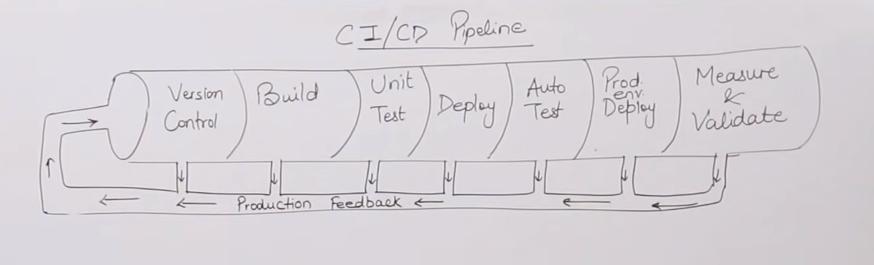 CI/CD Pipeline
Version
Control
Build
Unit
Test
Deploy
Auto
Test
Prod.
env.
Deploy
Measure
&
Validate
Production Feedback